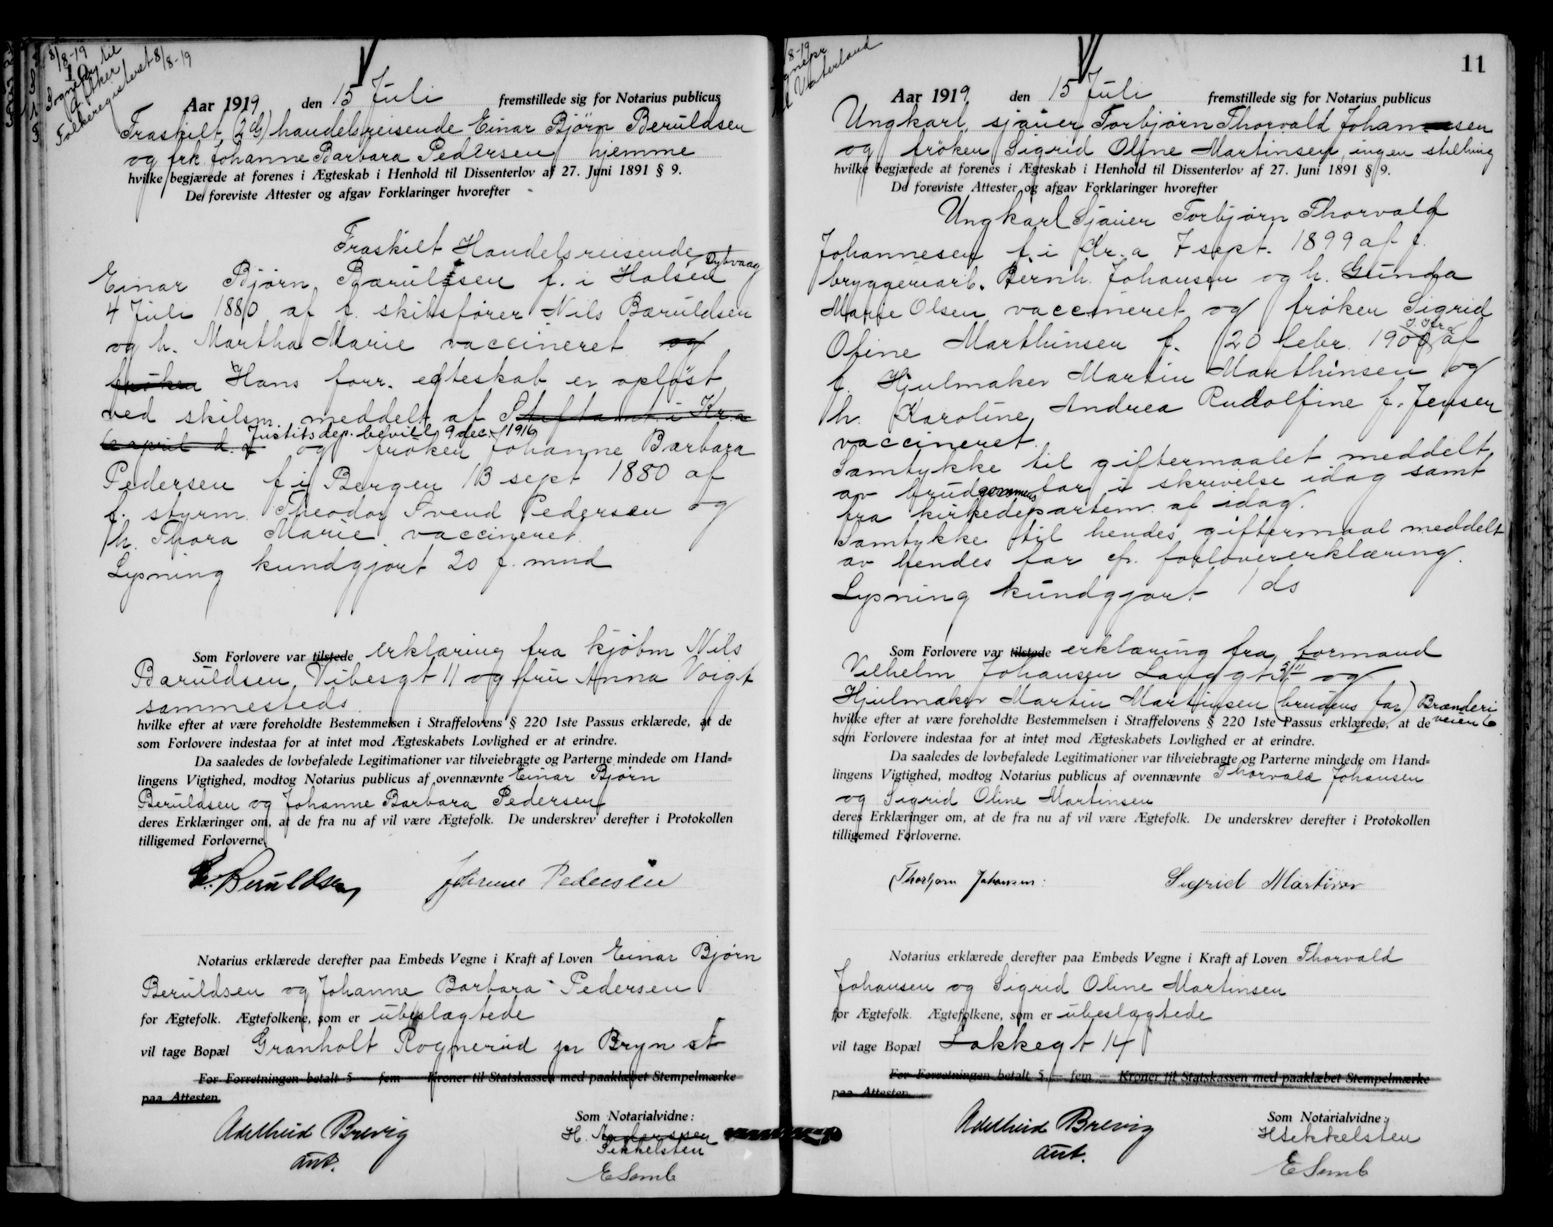 8/8-19
10
Sognepr. til
Folkeregisteret 8/8-19
Aar 1919 den 15 Juli fremstillede sig for Notarius publicus
Fraskilt handelsreisende Einar Bjørn Beruldsen
og frk Johanne Barbara Pedersen hjemme
hvilke begjærede at forenes i Ægteskab i Henhold til Dissenterlov af 27. Juni 1891 § 9.
De foreviste Attester og afgav Forklaringer hvorefter
Fraskilt Handelsreisende
Einar Bjørn Bærulsen f. i Holsen Dybvaag
4 Juli 1880 af f. skibsfører Nils Bæruldsen
og h. Martha Marie vaccineret og
frøken Hans forr. egteskab er opløst
ved skilsm. meddelt af Stiftamt i Kra
6 april d. a. Justitsdep. bevill 9 dec. 1916
og frøken Johanne Barbara
Pedersen f i Bergen 13 sept 1880 af
f. styrm. Theodor Svend Pedersen og
h. Thora Marie. vaccineret.
Lysning kundgjort 20 f. mnd
Som Forlovere var tilstede erklæring fra kjøbm Nils
Baruldsen, Vibesgt 11 og fru Anna Voigt
sammesteds
hvilke efter at være foreholdte Bestemmelsen i Straffelovens § 220 1ste Passus erklærede, at de
som Forlovere indestaa for at intet mod Ægteskabets Lovlighed er at erindre.
Da saaledes de lovbefalede Legitimationer var tilveiebragte og Parterne mindede om Hand=
lingens Vigtighed, modtog Notarius publicus af ovennævnte Einar Bjørn
Beruldsen og Johanne Barbara Pedersen
deres Erklæringer om, at de fra nu af vil være Ægtefolk. De underskrev derefter i Protokollen
tilligemed Forloverne.
E. Beruldsen Johanne Pedersen
Notarius erklærede derefter paa Embeds Vegne i Kraft af Loven Einar Bjørn
Beruldsen og Johanne Barbara Pedersen
for Ægtefolk. Ægtefolkene, som er ubeslægtede
vil tage Bopæl Granholt Rognerud pr Bryn st
For Forretningen betalt 5 — fem — Kroner til Statskassen med paaklæbet Stempelmærke
paa Attesten
Adelheid Brevig
aut.
Som Notarialvidne:
H. Andersen
Sikkelsten
E Semb
8/8-19
Sognepr
t Vaterland
11
Aar 1919 den 15 Juli fremstillede sig for Notarius publicus
Ungkarl, sjauer Torbjørn Thorvald Johannesen
og frøken Sigrid Oline Martinsen, ingen stilling
hvilke begjærede at forenes i Ægteskab i Henhold til Dissenterlov af 27. Juni 1891 § 9.
De foreviste Attester og afgav Forklaringer hvorefter
Ungkarl Sjauer Torbjørn Thorvald
Johannesen f. i Kr.a 7 sept. 1899 af f.
bryggeriarb. Bernh. Johansen og h. Gunda
Marie Olsen vaccineret og frøken Sigrid
Oline Marthinsen f. 20 febr. 1900 af
f. Hjulmaker Martin Marthinsen og
h. Karoline Andrea Rudolfine f. Jensen
vaccineret.
Samtykke til giftermaalet meddelt
av brudgommens far i skrivelse idag samt
fra kirkedepartem. af idag.
Samtykke til hendes giftermaal meddelt
av hendes far cfr. forlovererklæring.
Lysning kundgjort 1 ds
Som Forlovere var tilstede erklæring fra formand
Vilhelm Johansen Langgt og
Hjulmaker Martin Martinsen (brudens far) Brænderi
veien 6
hvilke efter at være foreholdte Bestemmelsen i Straffelovens § 220 1ste Passus erklærede, at de
som Forlovere indestaa for at intet mod Ægteskabets Lovlighed er at erindre.
Da saaledes de lovbefalede Legitimationer var tilveiebragte og Parterne mindede om Hand=
lingens Vigtighed, modtog Notarius publicus af ovennævnte Thorvald Johansen
og Sigrid Oline Martinsen
deres Erklæringer om, at de fra nu af vil være Ægtefolk. De underskrev derefter i Protokollen
tilligemed Forloverne.
Thorbjørn Johansen. Sigrid Martinsen
Notarius erklærede derefter paa Embeds Vegne i Kraft af Loven Thorvald
Johansen og Sigrid Oline Martinsen
for Ægtefolk. Ægtefolkene, som er ubeslægtede
vil tage Bopæl Lakkegt 14
For Forretningen betalt 5 — fem — Kroner til Statskassen med paaklæbet Stempelmærke
paa Attesten
Adelheid Brevig
aut.
Som Notarialvidne:
H Sikkelsten
E Semb